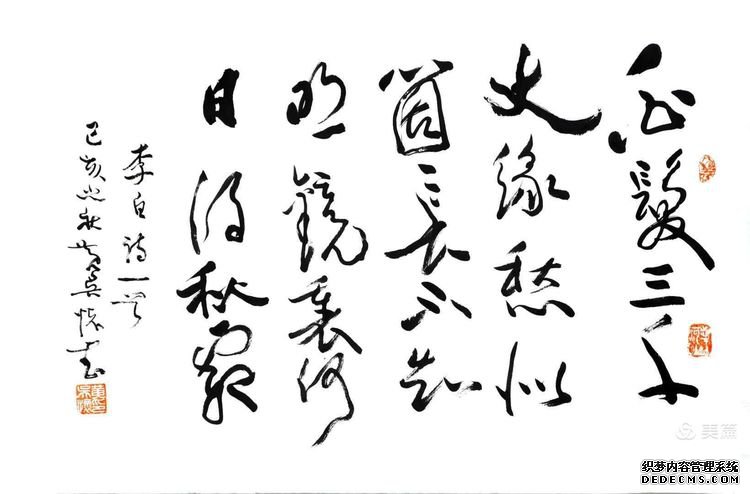 白髮三千
丈緣愁似
箇長不知
明鏡裏何
日得秋霜
李白詩一首
己亥 秋 書
美篇
织梦内容管理系统
DEDECMS.COM